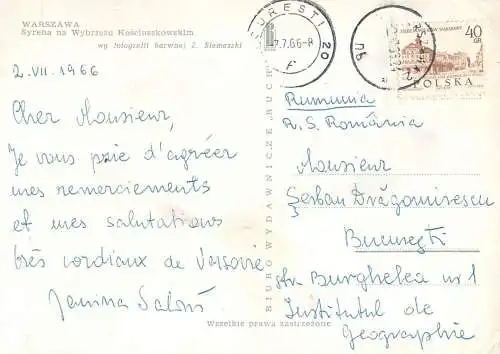 WARSZAWA
Syrena na Wybrzeżu Kościuszkowskim
wg fotografii barwnej Z. Siemaszki
2.VII.1966
Cher Monsieur,
Je vous prie d'agréer
mes remerciements
et mes salutations
très cordiaux de Varsovie
Janina
Wszelkie prawa zastrzeżone
BIURO WYDAWNICZE „RUCH"
BUCUREȘTI 20
.7.66-8
40
GR
POLSKA
Rumunia
R.S. România
Monsieur
Șerban Drăgomirescu
București
Str. Burghelea nr 1
Institutul de
Geographie